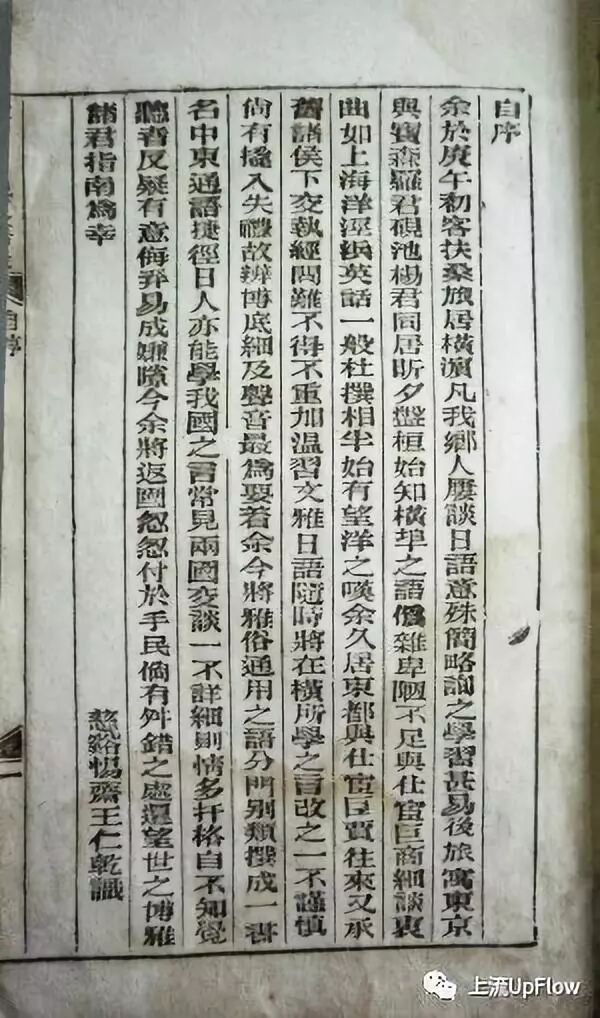 自序
余於庚午初客扶桑旅居橫濱凡我鄉人屢談日語意殊簡略詢之學習甚易後旅寓東京
與寶森羅君硯池楊君同居昕夕盤桓始知橫埠之語僞雜卑陋不足與仕宦巨商細談衷
曲如上海洋涇浜英話一般杜撰相半始有望洋之嘆余久居東都與仕宦巨賈往來又承
舊諸侯下交執經問難不得不重加溫習文雅日語隨時將在橫所學之言改之一不謹慎
尙有攙入失禮故辨博底細及聲音最爲要着余今將雅俗通用之語分門別類撰成一書
名中東通語捷徑日人亦能學我國之言常見兩國交談一不詳細則情多扞格自不知覺
聽者反疑有意侮弄易成嫌隙今余將返國怱怱付於手民倘有舛錯之處還望世之博雅
諸君指南爲幸
慈谿惕齋王仁乾識
自序
上流UpFlow